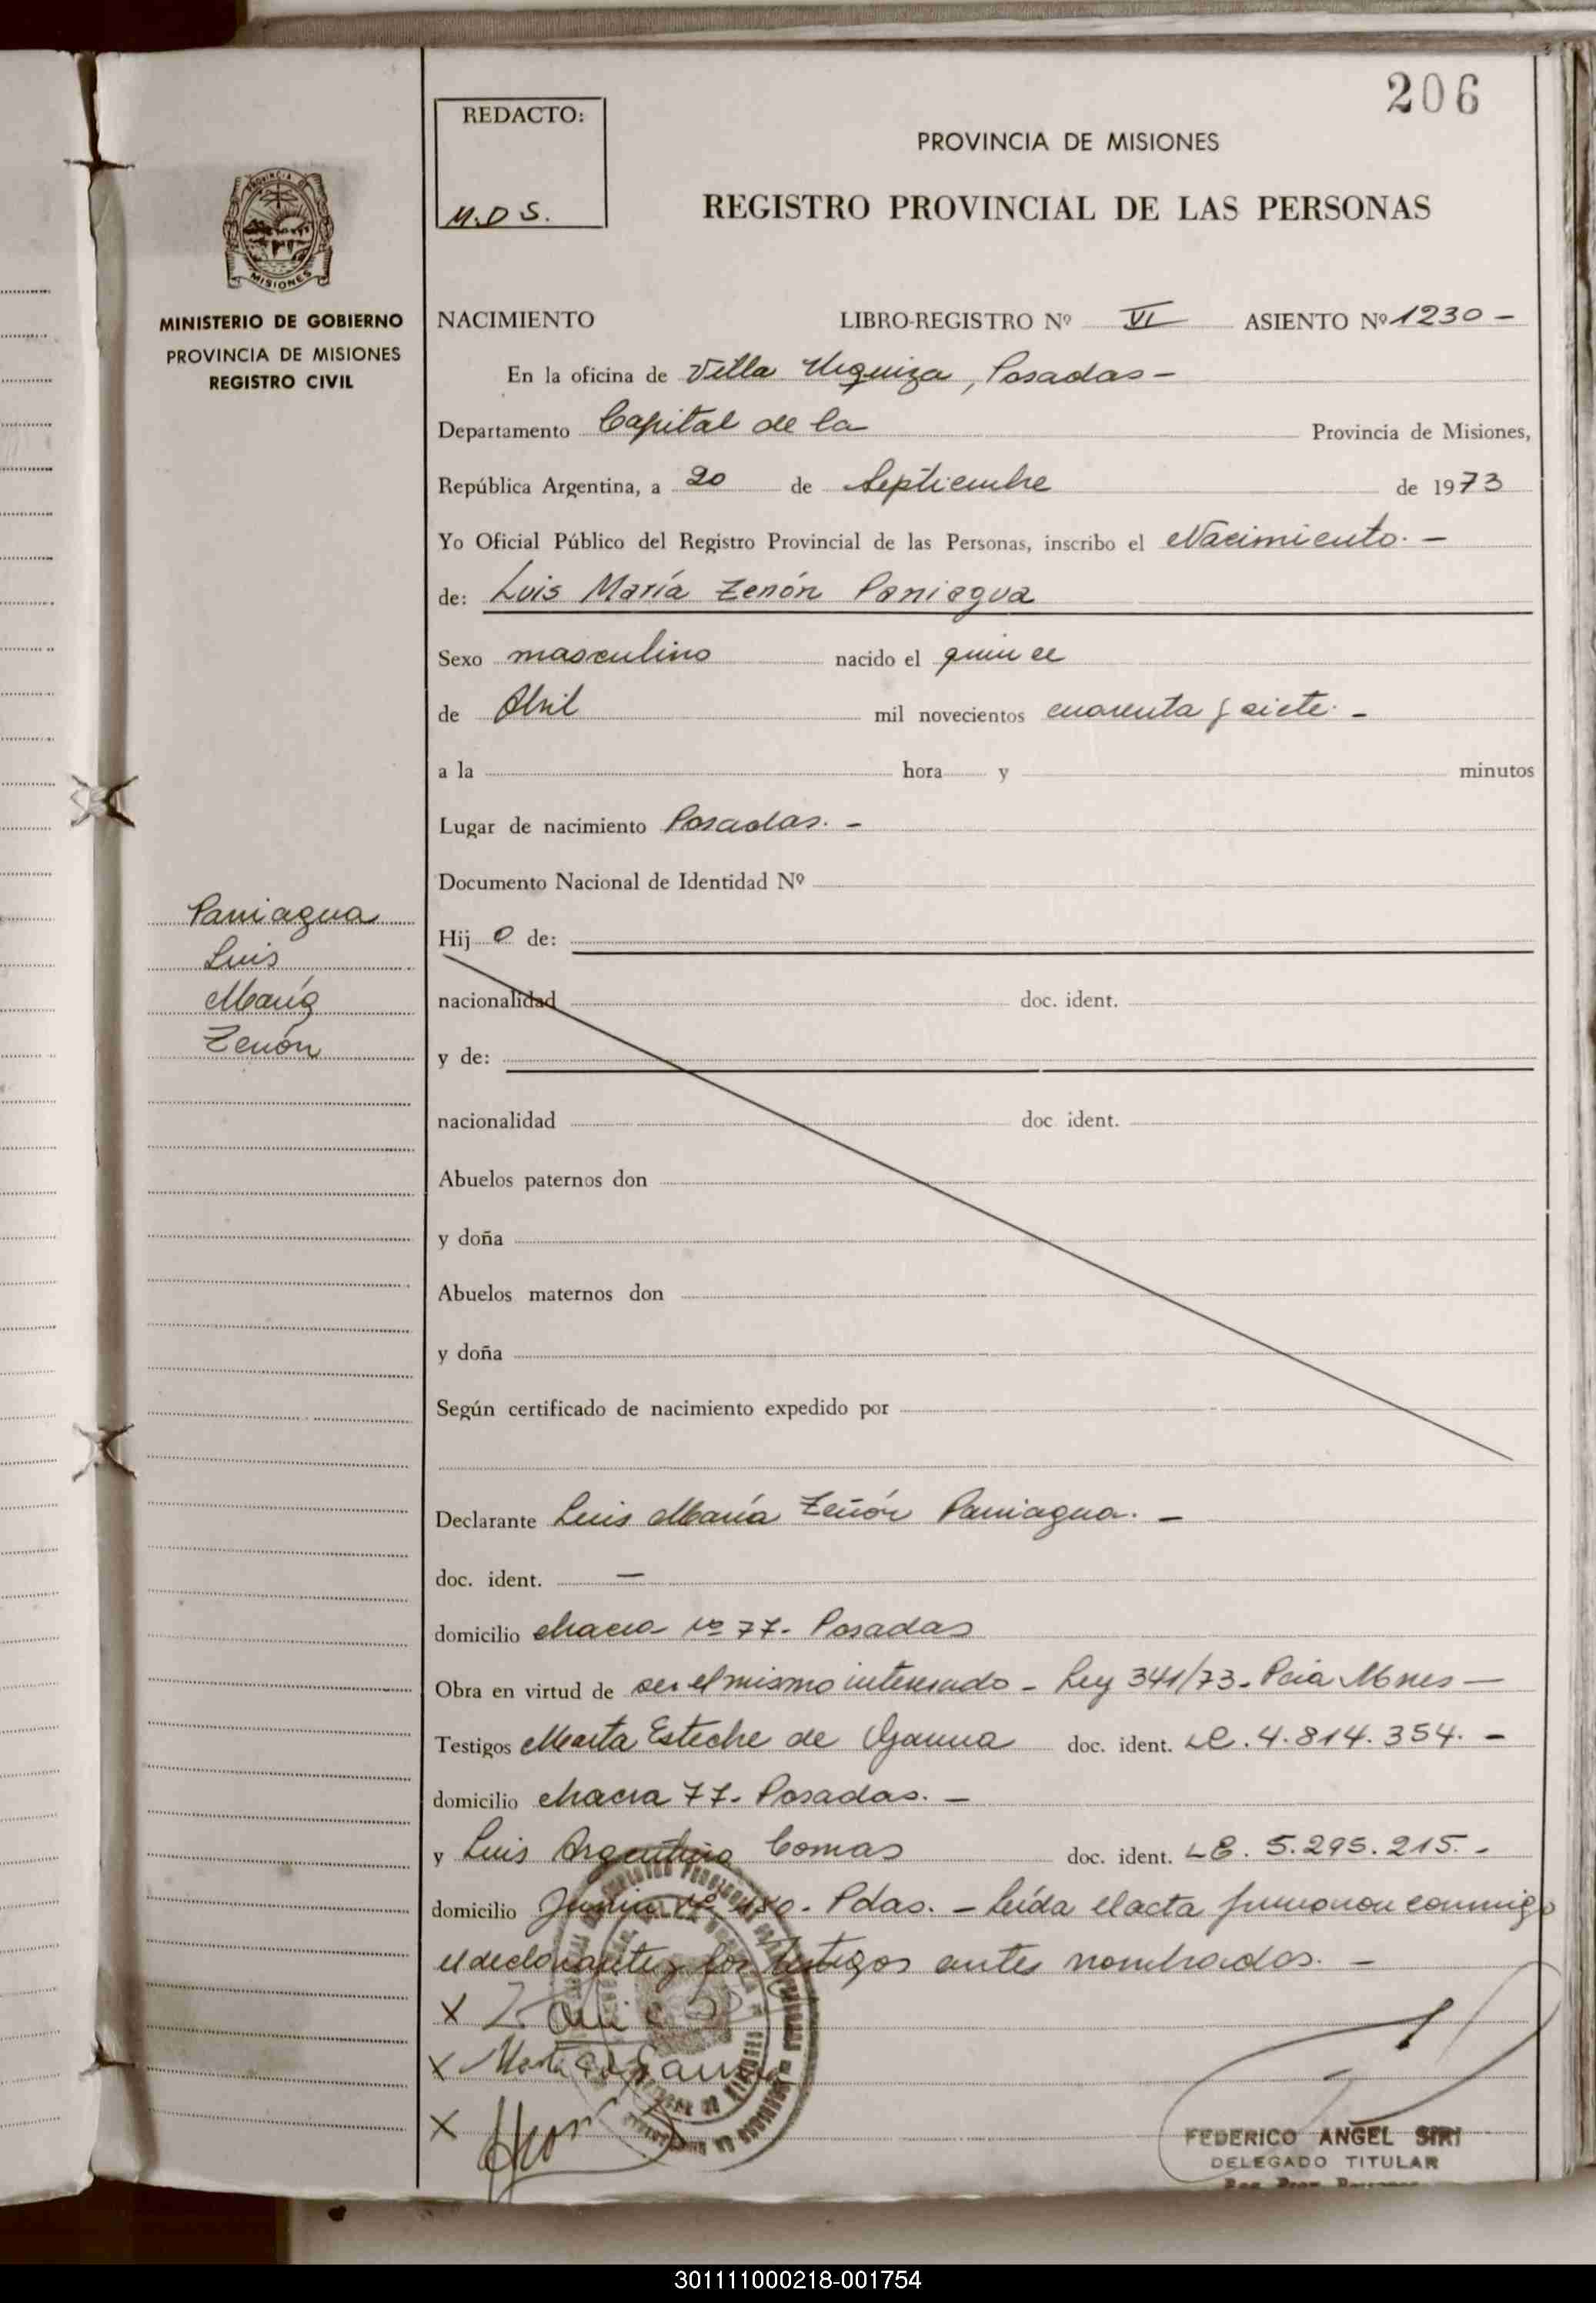 206
REDACTO:
M.D S.
PROVINCIA DE MISIONES
REGISTRO PROVINCIAL DE LAS PERSONAS
PROVINCIA DE
MISIONES
MINISTERIO DE GOBIERNO
PROVINCIA DE MISIONES
REGISTRO CIVIL
NACIMIENTO LIBRO-REGISTRO Nº VI ASIENTO Nº 1230 -
En la oficina de Villa Urquiza, Posadas -
Departamento Capital de la Provincia de Misiones,
República Argentina, a 20 de Septiembre de 1973
Yo Oficial Público del Registro Provincial de las Personas, inscribo el Nacimiento. -
de: Luis María Zenón Paniagua
Sexo masculino nacido el quince
de Abril mil novecientos cuarenta y siete. -
a la hora y minutos
Lugar de nacimiento Posadas. -
Documento Nacional de Identidad Nº
Paniagua
Luis
María
Zenón
Hij o de:
nacionalidad doc. ident.
y de:
nacionalidad doc. ident.
Abuelos paternos don
y doña
Abuelos maternos don
y doña
Según certificado de nacimiento expedido por
Declarante Luis María Zenón Paniagua. -
doc. ident. —
domicilio chacra Nº 77- Posadas
Obra en virtud de ser el mismo interesado - Ley 341/73 - Pcia Mnes -
Testigos Marta Esteche de doc. ident. LC. 4.814.354. -
domicilio chacra 77- Posadas. -
y Luis Argentino Comas doc. ident. LE. 5.295.215. -
domicilio Junín Nº 480- Pdas. - Leída el acta firmaron conmigo
el declarante y los testigos antes nombrados. -
X
X
X
FEDERICO ANGEL SIRI
DELEGADO TITULAR
301111000218-001754